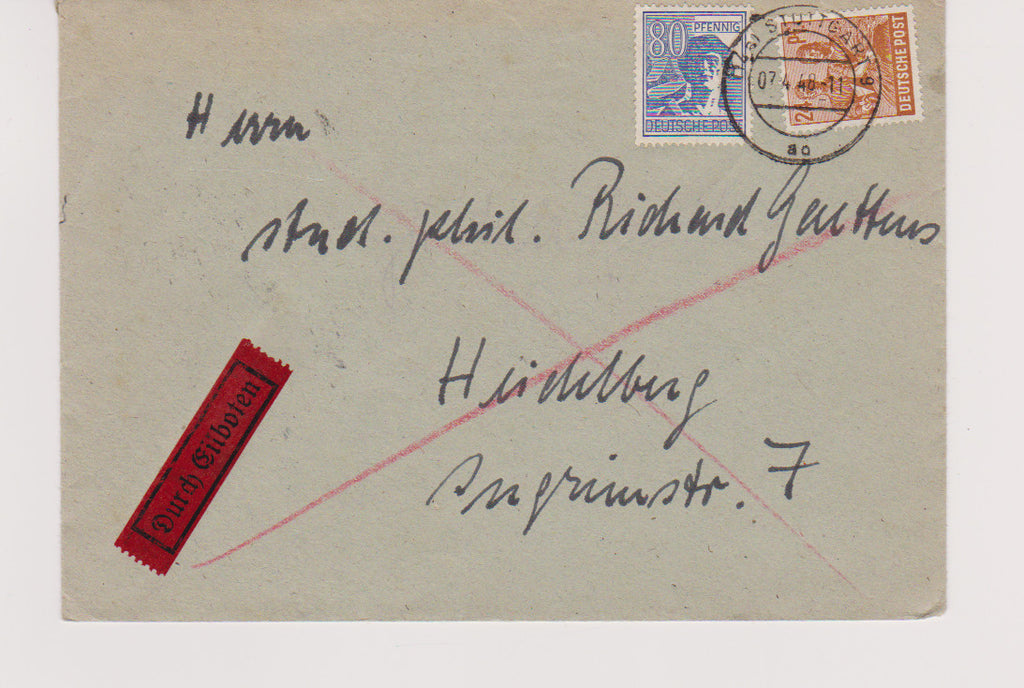 80 PFENNIG
DEUTSCHE POST
24
DEUTSCHE POST
STUTTGART 6
07.4.48-11
ao
Herrn
stud. phil. Richard Gaettens
Heidelberg
Ingrimstr. 7
Durch Eilboten